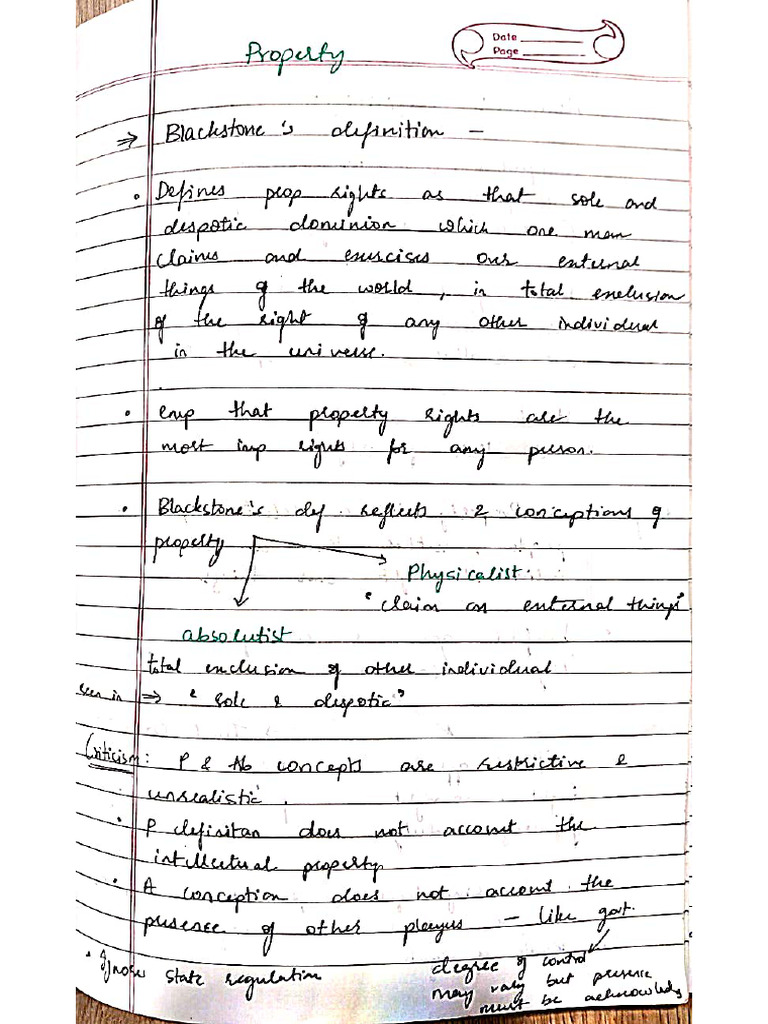 Property
Date
Page
⇒ Blackstone's definition -
• Defines prop rights as that sole and
despotic dominion which one man
claims and exercises over external
things of the world, in total exclusion
of the right of any other individual
in the universe.
• emp that property rights are the
most imp rights for any person.
• Blackstone's def reflects 2 conceptions of
property
Physicalist.
"claim on external things"
absolutist
total exclusion of other individual
seen in ⇒ "sole & despotic"
Criticism: P & Ab concepts are restrictive &
unrealistic.
• P definitan does not account the
intellectual property
• A conception does not account the
presence of other players - like govt.
• Ignores state regulation
degree of control
may vary but presence
must be acknowledg